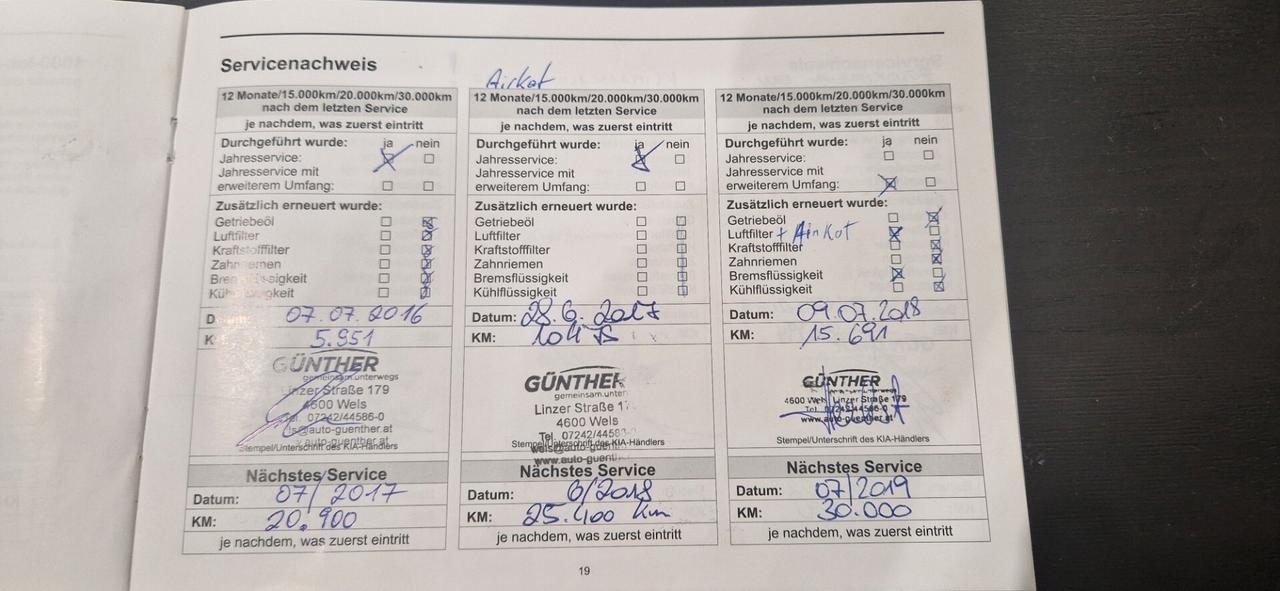 Servicenachweis
Airkot
12 Monate/15.000km/20.000km/30.000km
nach dem letzten Service
je nachdem, was zuerst eintritt
Durchgeführt wurde: ja nein
Jahresservice:
Jahresservice mit
erweiterem Umfang:
Zusätzlich erneuert wurde:
Getriebeöl
Luftfilter
Kraftstofffilter
Zahnriemen
Bremsflüssigkeit
Kühlflüssigkeit
07.07.2016
5.951
GÜNTHER
gemeinsam.unterwegs
Linzer Straße 179
4600 Wels
Tel. 07242/44586-0
@auto-guenther.at
auto-guenther.at
Stempel/Unterschrift des KIA-Händlers
Nächstes Service
Datum: 07/2017
KM: 20.900
je nachdem, was zuerst eintritt
12 Monate/15.000km/20.000km/30.000km
nach dem letzten Service
je nachdem, was zuerst eintritt
Durchgeführt wurde: ja nein
Jahresservice:
Jahresservice mit
erweiterem Umfang:
Zusätzlich erneuert wurde:
Getriebeöl
Luftfilter
Kraftstofffilter
Zahnriemen
Bremsflüssigkeit
Kühlflüssigkeit
Datum: 28.6.2017
KM: 10475
GÜNTHER
gemeinsam.unter
Linzer Straße 17
4600 Wels
Tel. 07242/4458
Stempel/Unterschrift des KIA-Händlers
www.auto-guent
Nächstes Service
Datum: 6/2018
KM: 25.400 km
je nachdem, was zuerst eintritt
12 Monate/15.000km/20.000km/30.000km
nach dem letzten Service
je nachdem, was zuerst eintritt
Durchgeführt wurde: ja nein
Jahresservice:
Jahresservice mit
erweiterem Umfang:
Zusätzlich erneuert wurde:
Getriebeöl
Luftfilter + Airkot
Kraftstofffilter
Zahnriemen
Bremsflüssigkeit
Kühlflüssigkeit
Datum: 09.07.2018
KM: 15.691
GÜNTHER
4600 Wels, Linzer Straße 179
Tel. 07242/44586-0
www.auto-guenther.at
Stempel/Unterschrift des KIA-Händlers
Nächstes Service
Datum: 07/2019
KM: 30.000
je nachdem, was zuerst eintritt
19